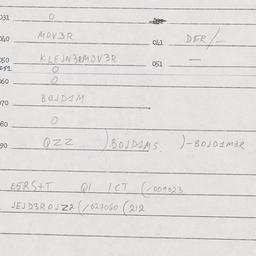 031 0
040 MOV3R 041 DER/-
050 KLEJN3RMOV3R 051 —
051 0
060 0
070 BOJD1M
080 0
090 QZZ )BOJD1MS )-BOJD1M3R
E5RS+T QI ICT (/009023
JEJD3ROJZ2 (/027060 (212